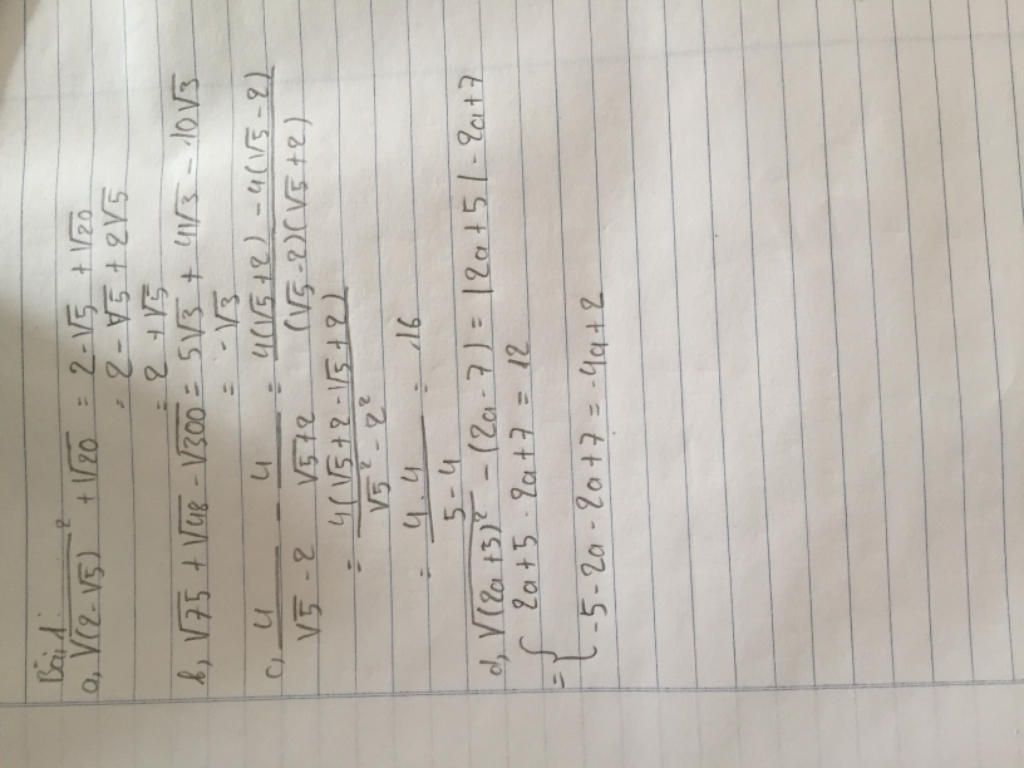 Bài 1
a, √(2-√5)² + √20 = 2-√5 + √20
= 2-√5 + 2√5
= 2 + √5
b, √75 + √48 - √300 = 5√3 + 4√3 - 10√3
= -√3
c, 4/(√5-2) - 4/(√5+2) = (4(√5+2) - 4(√5-2))/((√5-2)(√5+2))
= 4(√5+2-√5+2)/(√5² - 2²)
= 4.4/(5-4) = 16
d, √(2a+3)² - (2a-7) = |2a+5| - 2a+7
= { 2a+5 - 2a+7 = 12
{ -5-2a-2a+7 = -4a+2